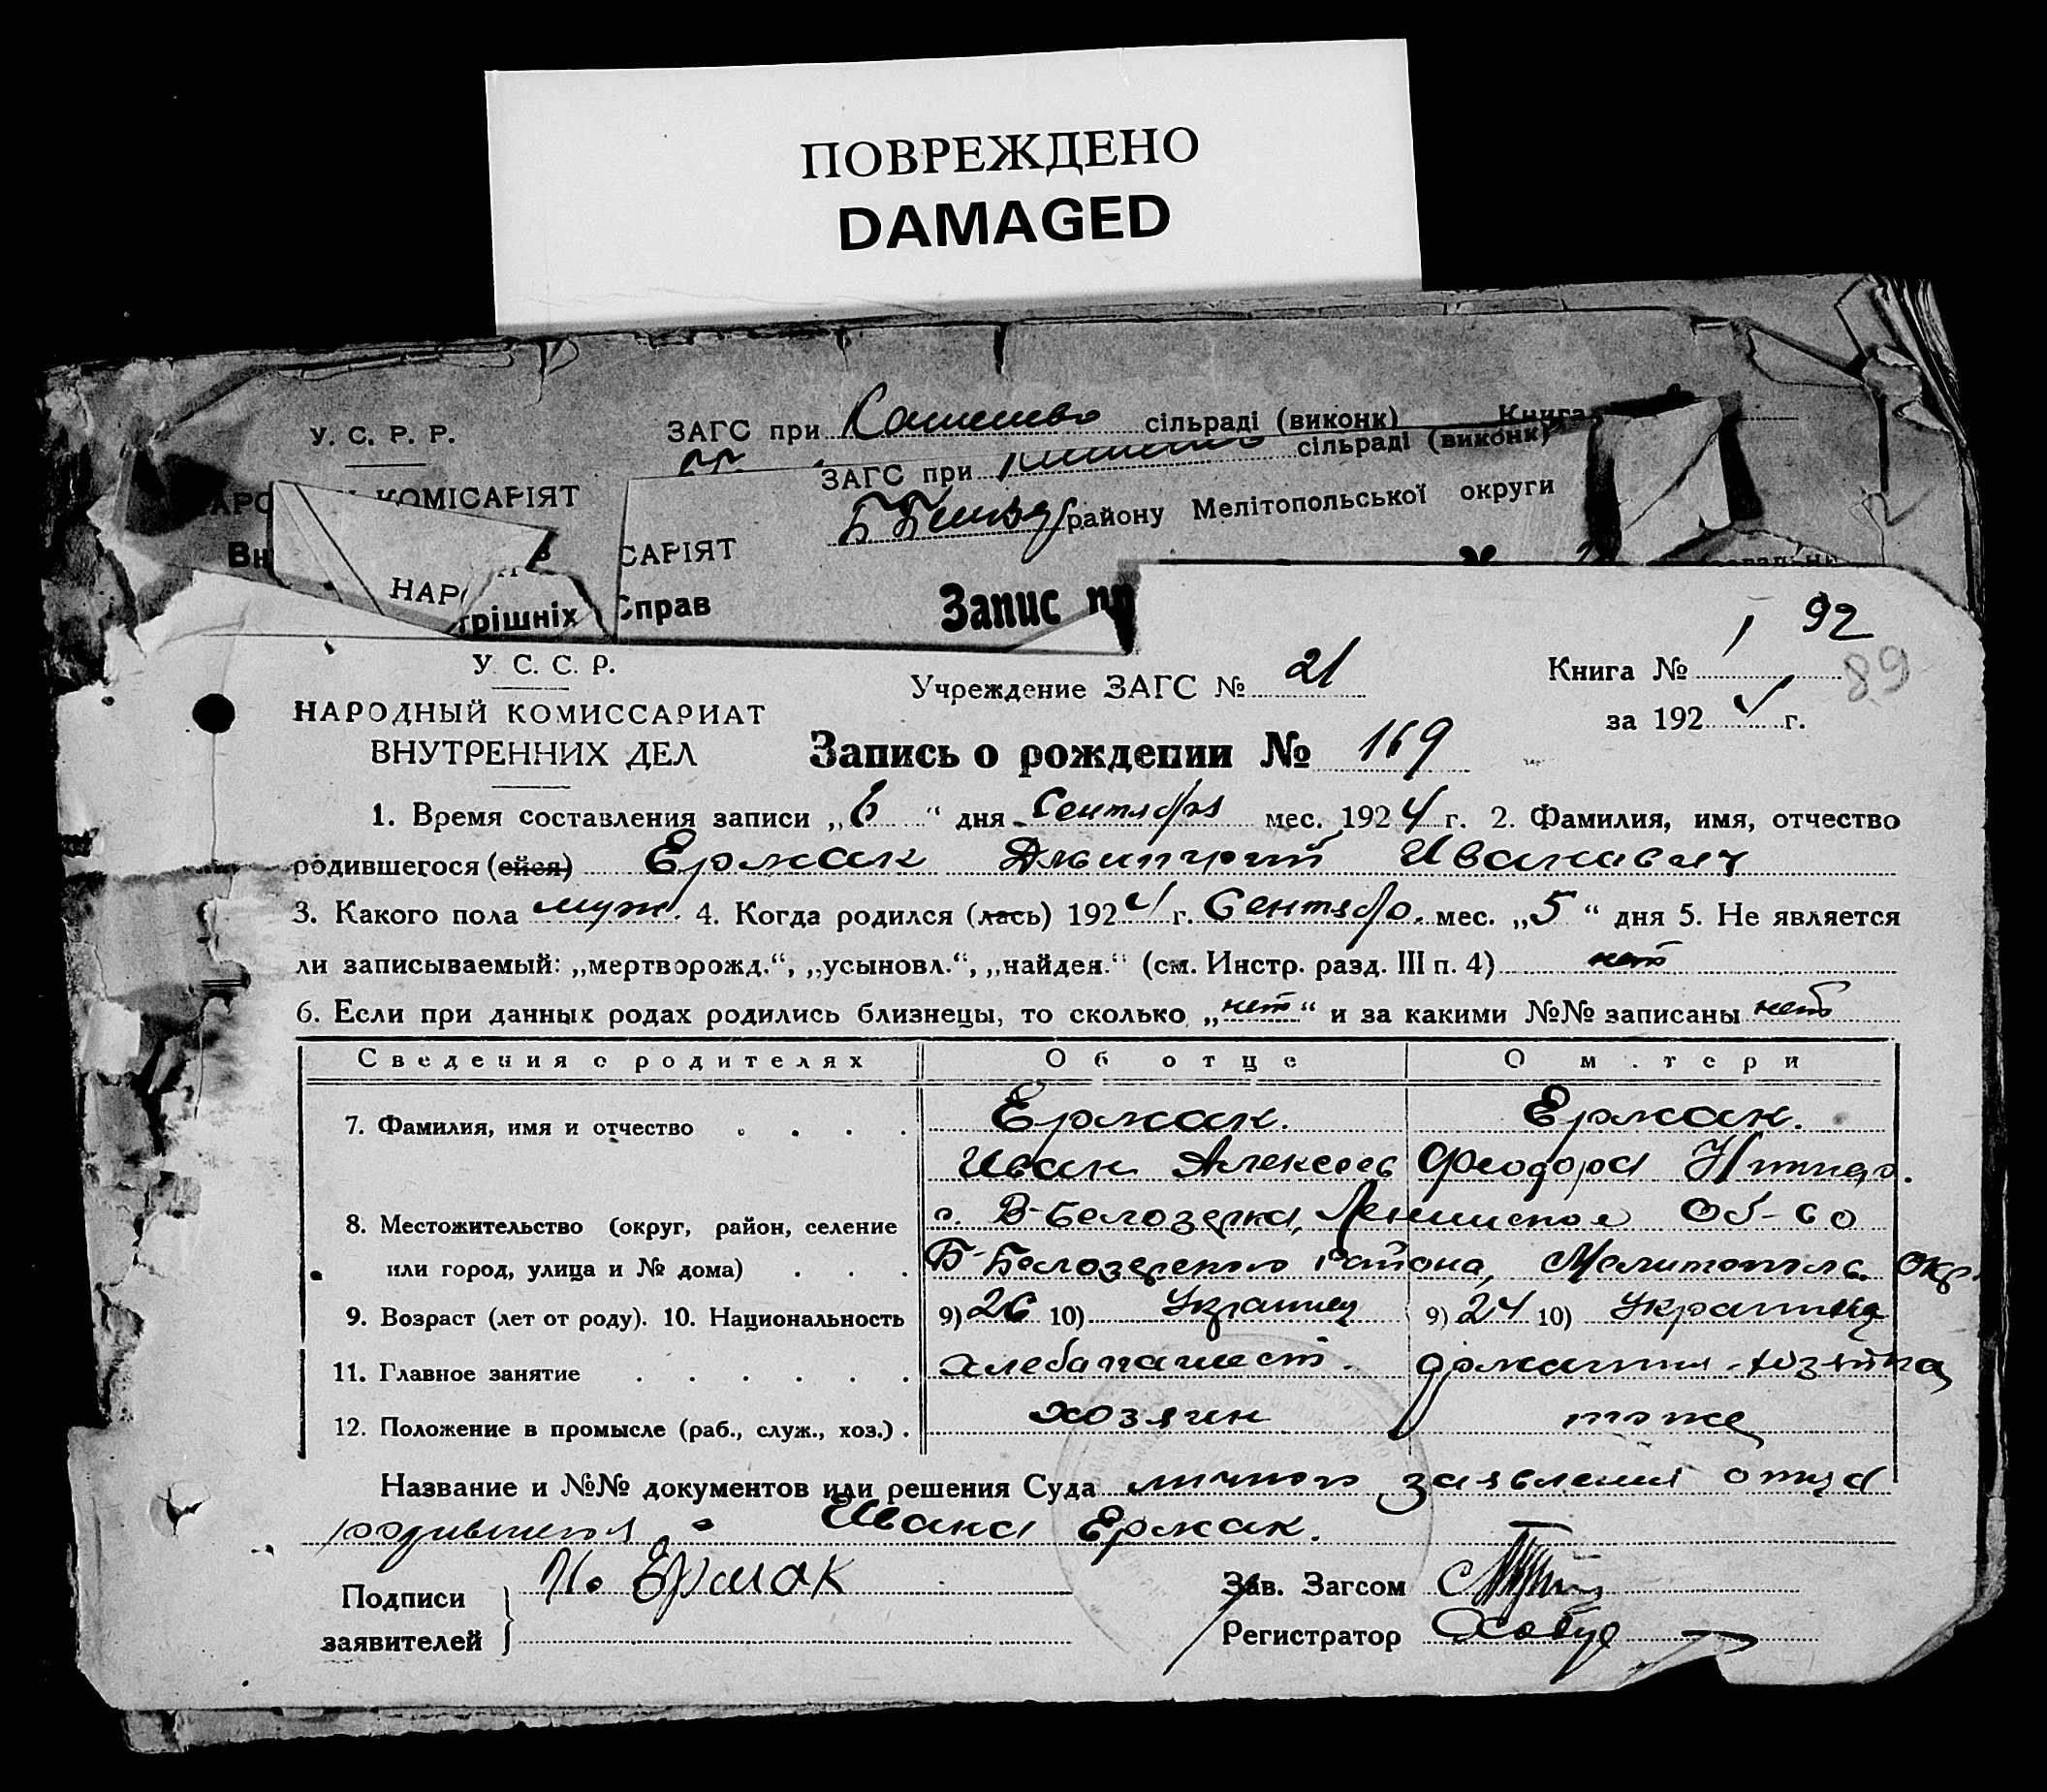 ПОВРЕЖДЕНО
DAMAGED
У. С. Р. Р.
ЗАГС при сільраді (виконк) Книга
ЗАГС при сільраді (виконк)
КОМІСАРІЯТ
району Мелітопольської округи
Вн
САРІЯТ
НАР
рішніх Справ
Запис пр
92
У. С. С. Р.
Учреждение ЗАГС № 21
Книга № 1
89
НАРОДНЫЙ КОМИССАРИАТ
за 1924 г.
ВНУТРЕННИХ ДЕЛ
Запись о рождении № 169
1. Время составления записи „6“ дня Сентября мес. 1924 г. 2. Фамилия, имя, отчество
родившегося (ейся) Ермак Дмитрий Иванович
3. Какого пола муж. 4. Когда родился (лась) 1924 г. Сентябр. мес. „5“ дня 5. Не является
ли записываемый: „мертворожд.“, „усыновл.“, „найден.“ (см. Инстр. разд. III п. 4) нет
6. Если при данных родах родились близнецы, то сколько „нет“ и за какими №№ записаны нет
Сведения о родителях Об отце О м.тери
7. Фамилия, имя и отчество . . . . Ермак. Ермак.
Иван Алексеев Феодора
8. Местожительство (округ, район, селение с. В-Белозерка, Об-во
или город, улица и № дома) . . . Б-Белозерского района, Мелитополь. окр.
9. Возраст (лет от роду). 10. Национальность 9) 26 10) Украинец 9) 24 10) Украинка
11. Главное занятие . . . . . . хлебопашест. домашн. хозяйка
12. Положение в промысле (раб., служ., хоз.) . хозяин тоже
Название и №№ документов или решения Суда личного заявления отца
родившегося Ивана Ермак.
Подписи И. Ермак
Зав. Загсом
заявителей
Регистратор